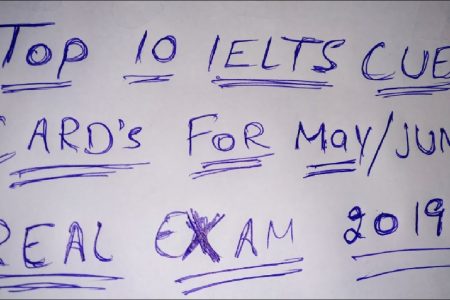 Top 10 IELTS CUE
CARD's FOR MAY/JUN
REAL EXAM 2019